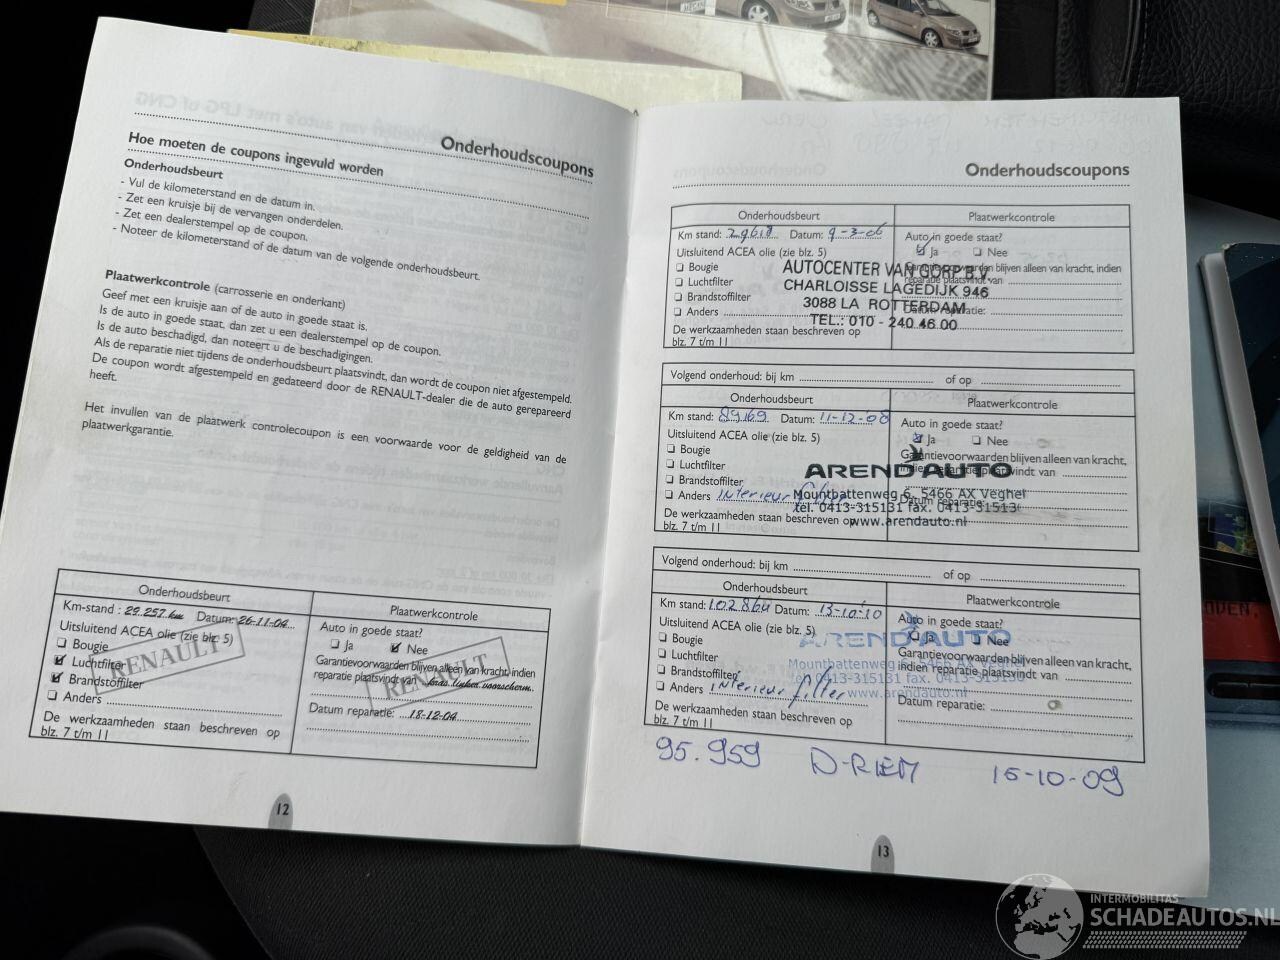 Onderhoudscoupons
Hoe moeten de coupons ingevuld worden
Onderhoudsbeurt
- Vul de kilometerstand en de datum in.
- Zet een kruisje bij de vervangen onderdelen.
- Zet een dealerstempel op de coupon.
- Noteer de kilometerstand of de datum van de volgende onderhoudsbeurt.
Plaatwerkcontrole (carrosserie en onderkant)
Geef met een kruisje aan of de auto in goede staat is.
Is de auto in goede staat, dan zet u een dealerstempel op de coupon.
Is de auto beschadigd, dan noteert u de beschadigingen.
Als de reparatie niet tijdens de onderhoudsbeurt plaatsvindt, dan wordt de coupon niet afgestempeld.
De coupon wordt afgestempeld en gedateerd door de RENAULT-dealer die de auto gerepareerd
heeft.
Het invullen van de plaatwerk controlecoupon is een voorwaarde voor de geldigheid van de
plaatwerkgarantie.
Onderhoudsbeurt
Km-stand : 29.257 km Datum: 26-11-04
Uitsluitend ACEA olie (zie blz. 5)
Bougie
Luchtfilter
Brandstoffilter
Anders
De werkzaamheden staan beschreven op
blz. 7 t/m 11
RENAULT
Plaatwerkcontrole
Auto in goede staat?
Ja Nee
Garantievoorwaarden blijven alleen van kracht, indien
reparatie plaatsvindt van kras linker voorscherm.
Datum reparatie: 18-12-04
RENAULT
12
Onderhoudscoupons
Onderhoudsbeurt
Km stand: 29618 Datum: 9-3-06
Uitsluitend ACEA olie (zie blz. 5)
Bougie
Luchtfilter
Brandstoffilter
Anders
De werkzaamheden staan beschreven op
blz. 7 t/m 11
Plaatwerkcontrole
Auto in goede staat?
Ja Nee
Garantievoorwaarden blijven alleen van kracht, indien
reparatie plaatsvindt van
Datum reparatie:
AUTOCENTER VAN GORP B.V.
CHARLOISSE LAGEDIJK 946
3088 LA ROTTERDAM
TEL.: 010 - 240 46 00
Volgend onderhoud: bij km of op
Onderhoudsbeurt
Km stand: 89169 Datum: 11-12-08
Uitsluitend ACEA olie (zie blz. 5)
Bougie
Luchtfilter
Brandstoffilter
Anders Interieur filter
De werkzaamheden staan beschreven op
blz. 7 t/m 11
Plaatwerkcontrole
Auto in goede staat?
Ja Nee
Garantievoorwaarden blijven alleen van kracht,
indien reparatie plaatsvindt van
Datum reparatie:
AREND AUTO
Mountbattenweg 6, 5466 AX Veghel
tel. 0413-315131 fax. 0413-315130
www.arendauto.nl
Volgend onderhoud: bij km of op
Onderhoudsbeurt
Km stand: 102864 Datum: 13-10-10
Uitsluitend ACEA olie (zie blz. 5)
Bougie
Luchtfilter
Brandstoffilter
Anders Interieur filter
De werkzaamheden staan beschreven op
blz. 7 t/m 11
Plaatwerkcontrole
Auto in goede staat?
Ja Nee
Garantievoorwaarden blijven alleen van kracht,
indien reparatie plaatsvindt van
Datum reparatie:
AREND AUTO
Mountbattenweg 6, 5466 AX Veghel
tel. 0413-315131 fax. 0413-315130
www.arendauto.nl
95.959 D-RIEM 15-10-09
13
INTERMOBILITAS
SCHADEAUTOS.NL